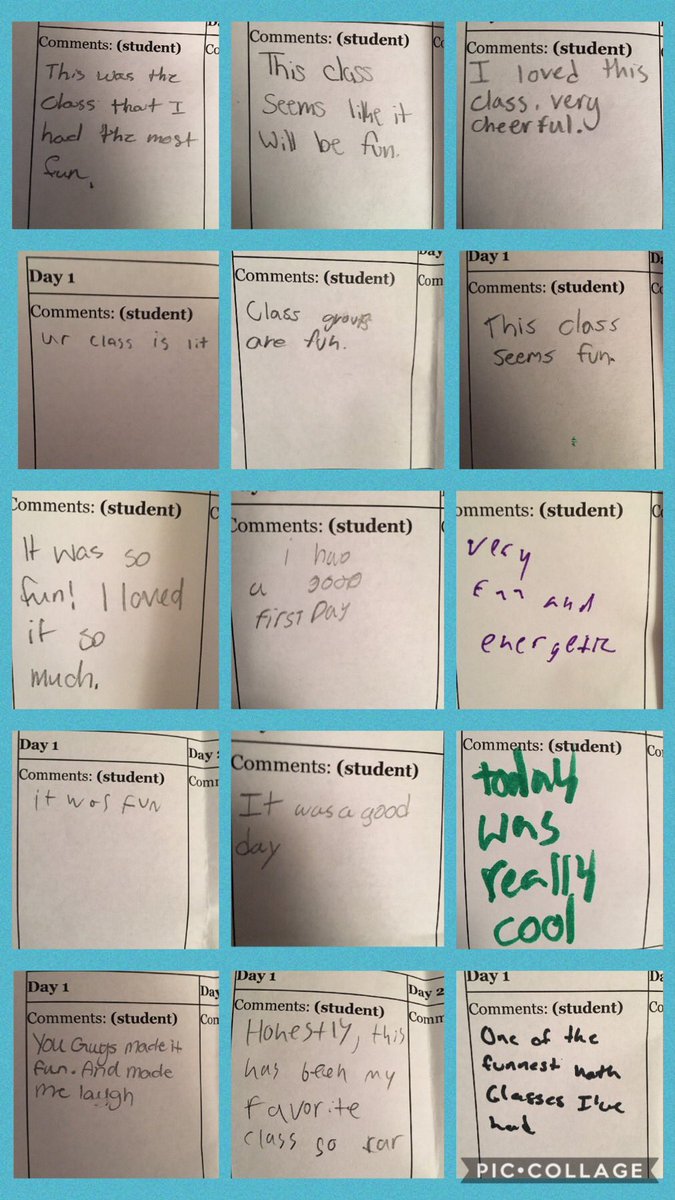 Comments: (student)
Co
This was the
Class that I
had the most
fun.
Comments: (student)
Co
This class
seems like it
will be fun.
Comments: (student)
I loved this
class. very
cheerful.
Day 1
Comments: (student)
ur class is lit
Day
Comments: (student)
Com
Class groups
are fun.
Day 1
Da
Comments: (student)
Co
This class
seems fun.
Comments: (student)
C
It was so
fun! I loved
it so
much.
Comments: (student)
i had
a good
first Day
omments: (student)
Co
very
fun and
energetic
Day 1
Day 2
Comments: (student)
Comm
it was fun
Comments: (student)
It was a good
day
Comments: (student)
Co
today
was
really
cool
Day 1
Day
Comments: (student)
Com
You Guys made it
fun. And made
me laugh
Day 1
Day 2
Comments: (student)
Comm
Honestly, this
has been my
favorite
class so far
Day 1
Da
Comments: (student)
Co
One of the
funnest math
Classes I've
had
PIC•COLLAGE